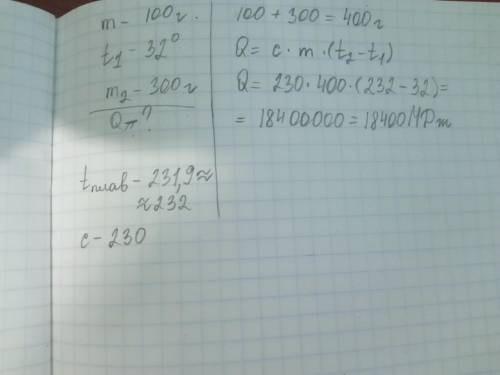 m - 100г.
t₁ - 32°
m₂ - 300г
Qп?
tплав - 231,9 ≈
≈ 232
c - 230
100 + 300 = 400г
Q = c · m · (t₂ - t₁)
Q = 230 · 400 · (232 - 32) =
= 18400000 = 18400